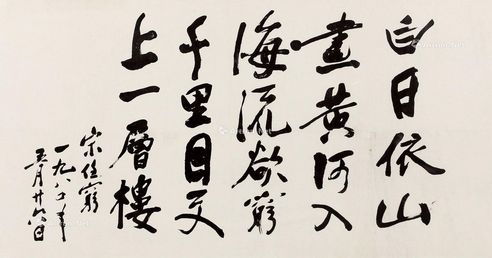 白日依山
盡黄河入
海流欲窮
千里目更
上一層樓
宋任窮
一九八年
月廿日